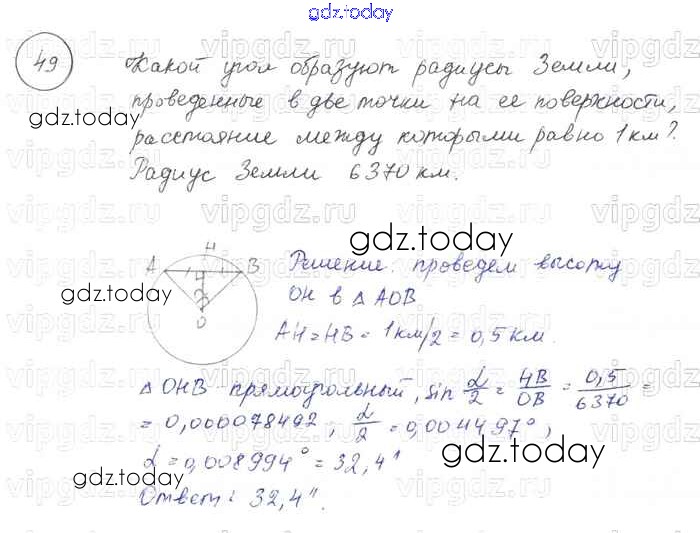 gdz.today
49 Какой угол образуют радиусы Земли,
проведенные в две точки на ее поверхности,
gdz.today
расстояние между которыми равно 1 км?
Радиус Земли 6370 км.
H
gdz.today
A B Решение: проведем высоту
gdz.today
OH в △ AOB
O
AH = HB = 1 км/2 = 0,5 км.
△ OHB - прямоугольный, sin α/2 = HB/OB = 0,5/6370 =
= 0,000078492 ; α/2 = 0,004497° ,
gdz.today
α = 0,008994° = 32,4"
gdz.today
Ответ: 32,4".